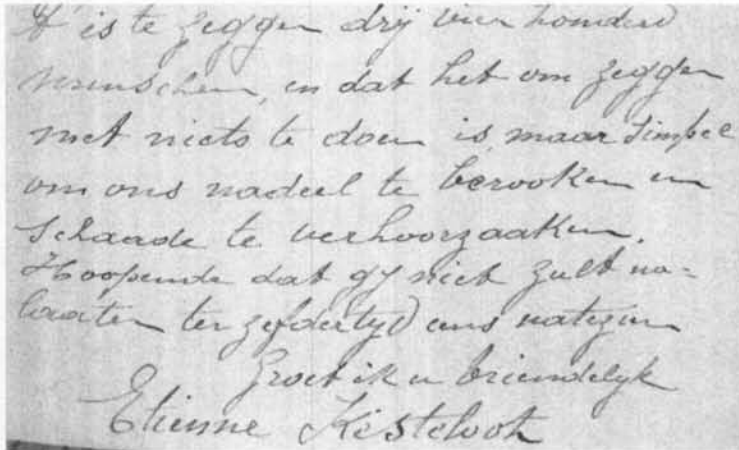 t' is te zeggen drij vier honderd
menschen, en dat het om zeggen
met niets te doen is, maar simpel
om ons nadeel te berooken en
Schaade te verhoorzaaken.
Hoopende dat gy niet zult na-
laaten ter zefdertyd eens natezien
Groet ik u vriendelyk
Etienne Kesteloot